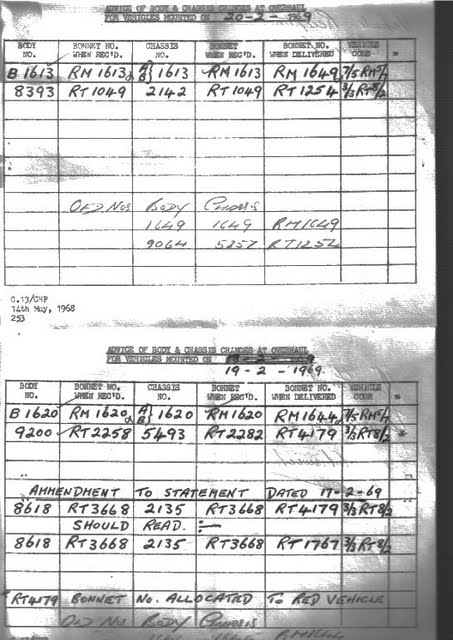 ADVICE OF BODY & CHASSIS CHANGES AT OVERHAUL
FOR VEHICLES MOUNTED ON 20-2-1969
BODY NO. BONNET NO. WHEN REC'D. CHASSIS NO. BONNET WHEN REC'D. BONNET NO. WHEN DELIVERED VEHICLE CODE *
B1613 RM1613 A/B 1613 RM1613 RM1649 7/5RM5/7
8393 RT1049 2142 RT1049 RT1254 3/3RT8/2
OLD NOS BODY CHASSIS
1649 1649 RM1649
9064 5257 RT1254
C.13/CHP
14th May, 1968
253
ADVICE OF BODY & CHASSIS CHANGES AT OVERHAUL
FOR VEHICLES MOUNTED ON
19-2-1969.
BODY NO. BONNET NO. WHEN REC'D. CHASSIS NO. BONNET WHEN REC'D. BONNET NO. WHEN DELIVERED VEHICLE CODE *
B1620 RM1620 A/B 1620 RM1620 RM1644 7/5RM5/7
9200 RT2258 5493 RT2282 RT4179 3/3RT8/2 *
AMMENDMENT TO STATEMENT DATED 17-2-69
8618 RT3668 2135 RT3668 RT4179 3/3RT8/2
SHOULD READ. :-
8618 RT3668 2135 RT3668 RT1767 3/3RT8/2
*RT4179 BONNET NO. ALLOCATED TO RED VEHICLE
OLD NO BODY CHASSIS